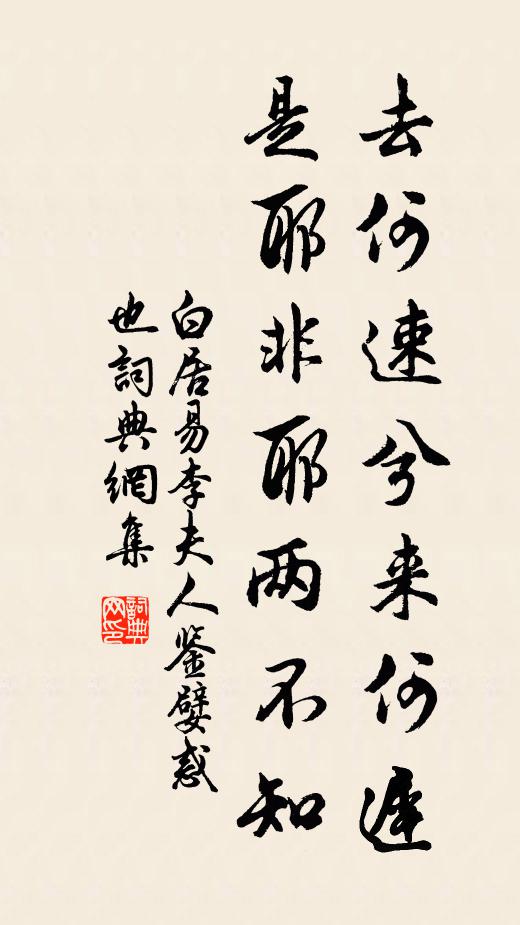 去何速兮来何遲
是耶非耶两不知
白居易李夫人鉴嬖惑
也詞典網集
詞典
网印